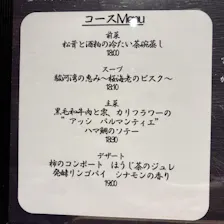 コースMenu
前菜
松茸と酒粕の冷たい茶碗蒸し
18:00
スープ
駿河湾の恵み～桜海老のビスク～
18:10
主菜
黒毛和牛肉と栗、カリフラワーの
"アッシ パルマンティエ"
ハマ鯛のソテー
18:30
デザート
柿のコンポート ほうじ茶のジュレ
発酵リンゴパイ シナモンの香り
19:00